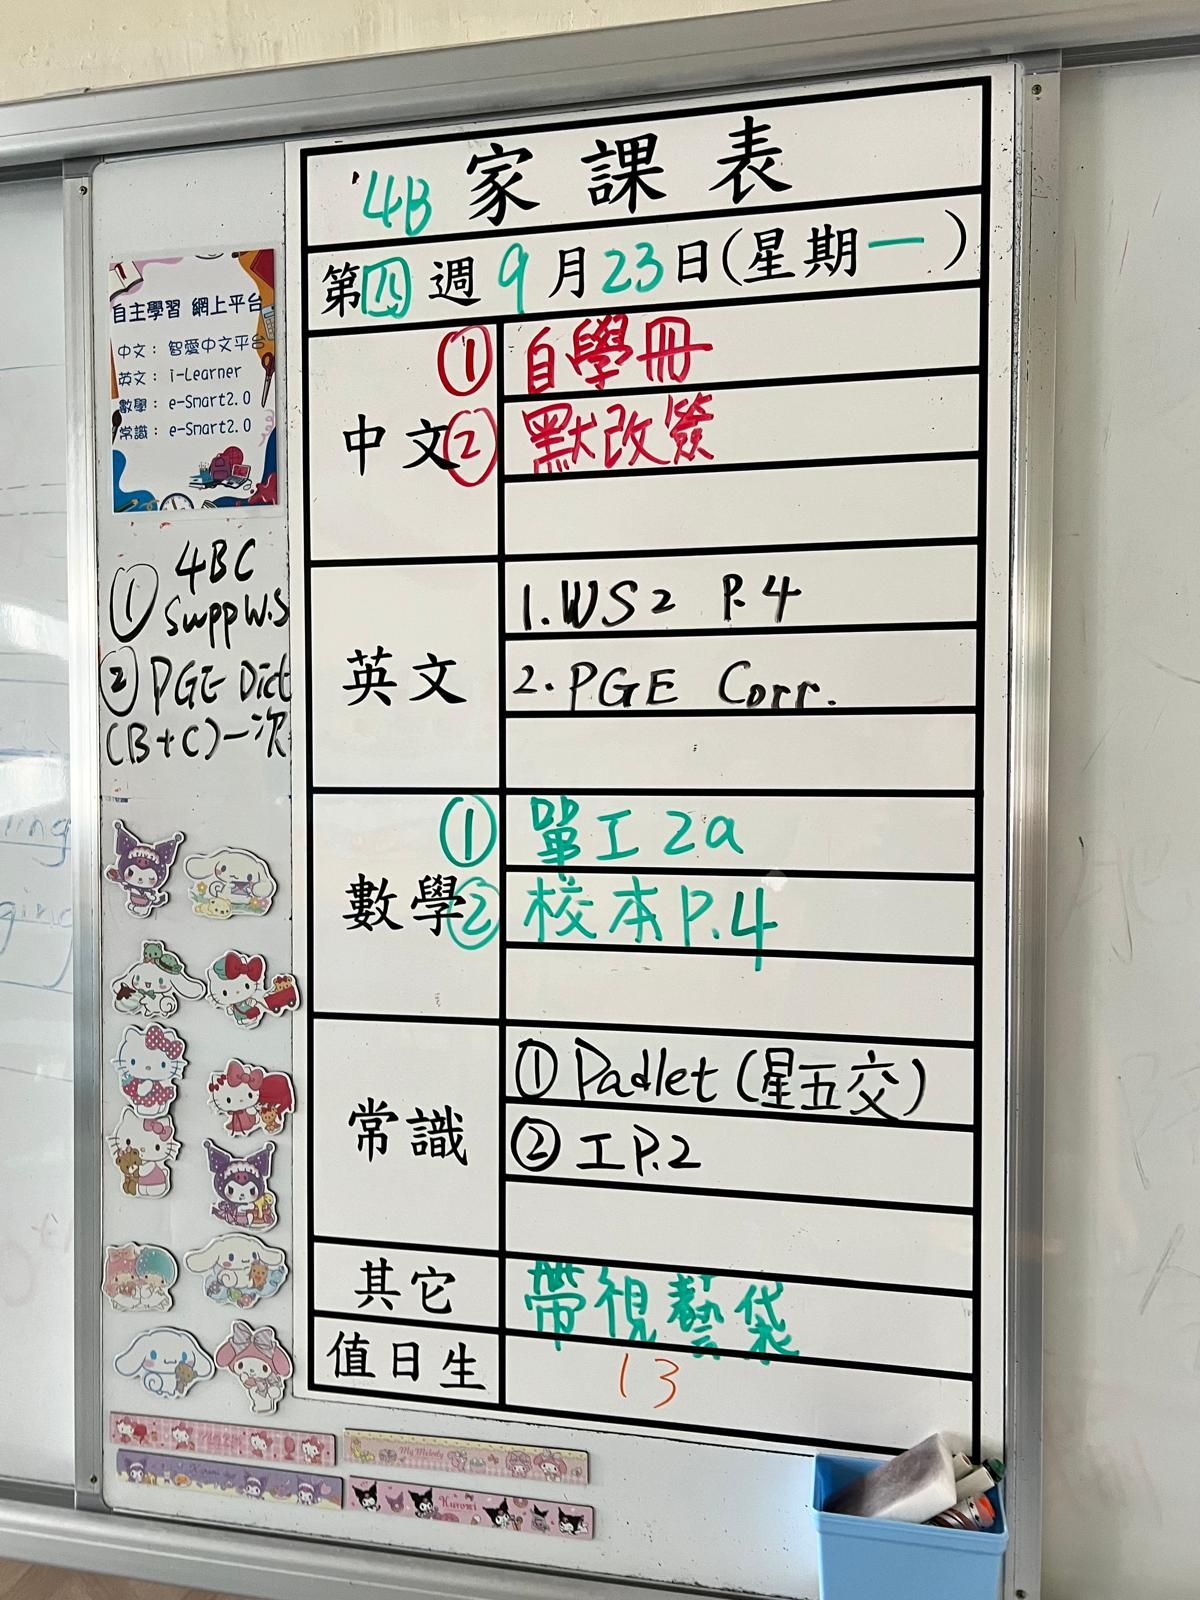 4B 家課表
第四週 9月23日(星期一)
中文
① 自學冊
② 默改簽
英文
1. WS2 P.4
2. PGE Corr.
數學
① 單工2a
② 校本P.4
常識
① Padlet (星五交)
② 工P.2
其它
帶視藝袋
值日生
13
自主學習 網上平台
中文： 智愛中文平台
英文： i-Learner
數學： e-Smart2.0
常識： e-Smart2.0
4BC
① Supp W.S
② PGE Dict
(B+C)一次
My Melody
Kuromi